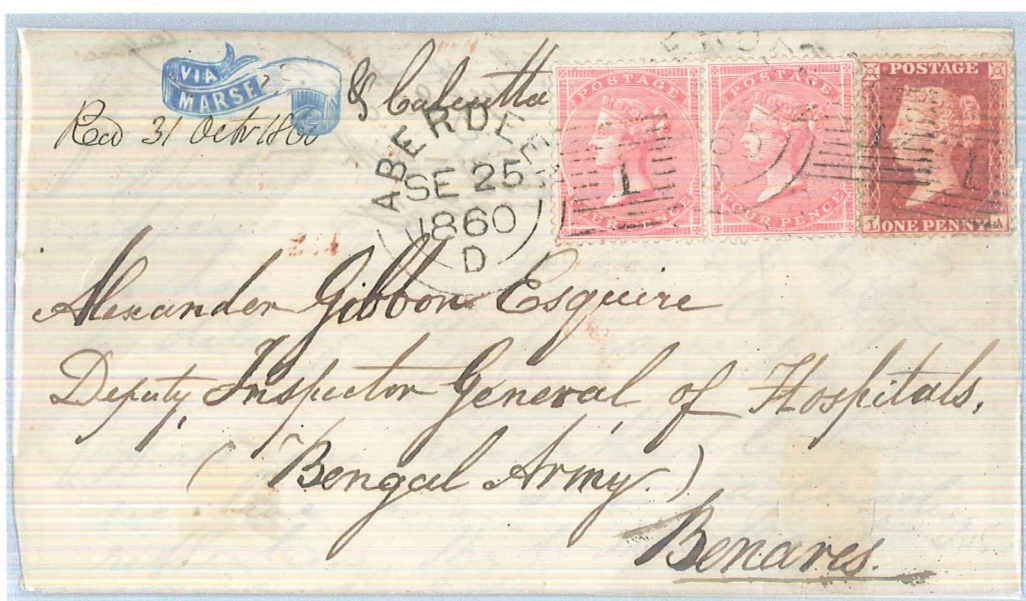 VIA
MARSE
& Calcutta
Recd 31 Octr 1860
ABERDEEN
SE 25
1860
D
POSTAGE
FOUR PENCE
1
POSTAGE
FOUR PENCE
POSTAGE
ONE PENNY
A
1
1
Alexander Gibbon Esquire
Deputy Inspector General of Hospitals,
(Bengal Army.)
Benares.